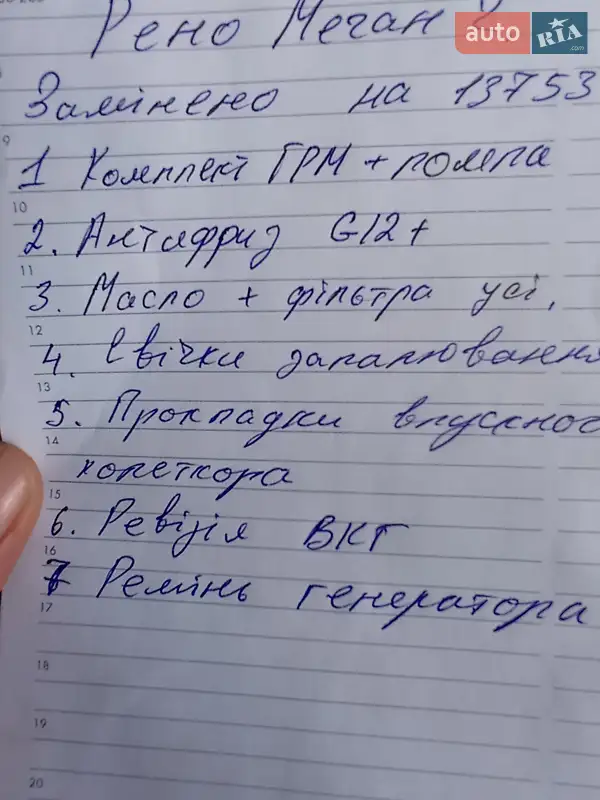 Рено Меган 2
auto RIA .com
Замінено на 13753
9
1 Комплект ГРМ + помпа
10
2. Антифриз G12+
11
3. Масло + фільтра усі,
12
4. Свічки запалювання
13
5. Прокладки впускног
14
колеткора
15
6. Ревізія ВКГ
16
7 Ремінь генератора
17
18
19
20